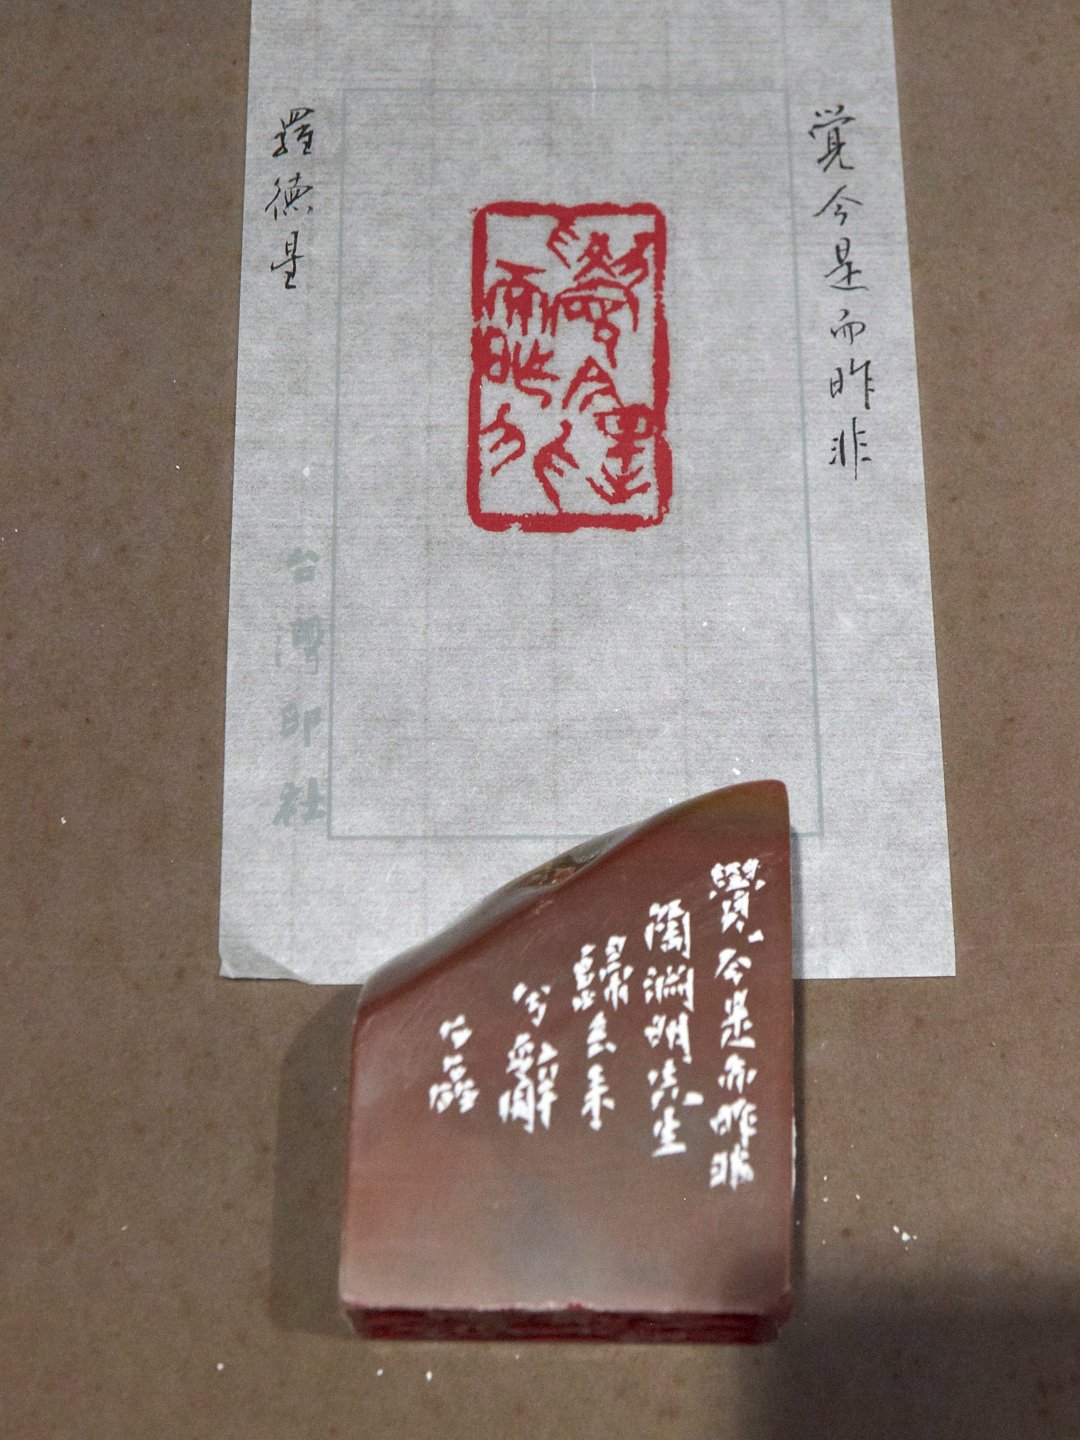 覚今是而昨非
覺今是
而昨非
羅德星
台灣印社
覺今是而昨非
陶淵明先生
歸去來
兮辭